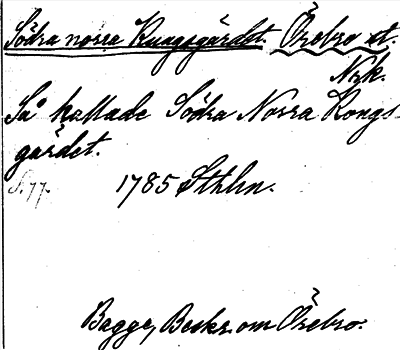 Södra norra Kungsgärdet. Örebro st.
Nrk.
Så kallade Södra Norra Kongs-
gärdet.
S. 77. 1785 Sthlm.
Bagge, Beskr. om Örebro.